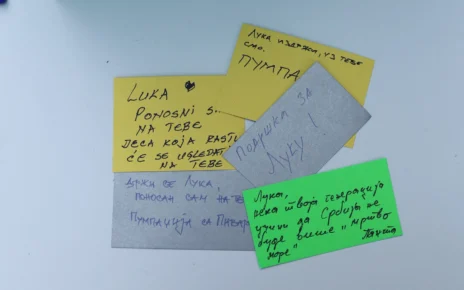 ЛУКА ИЗДРЖИ, УЗ ТЕБЕ
СМО.
ПУМПА
LUKA
PONOSNI S..
NA TEBE
DECA KOJA RASTU
ĆE SE UGLEDATI
NA TEBE
ПОДРШКА ЗА
ЛУКУ!
ДРЖИ СЕ ЛУКА,
ПОНОСАН САМ НА ТЕ
ПУМПАЏИЈА СА
Лука,
нека твоја генерација
учини да Србија не
буде више „мртво
море"